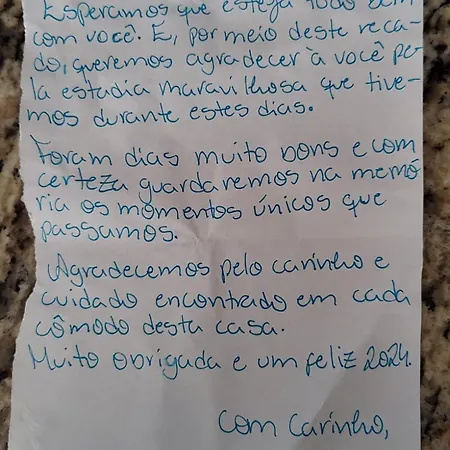 Esperamos que esteja tudo bem
com você. E, por meio deste reca-
do, queremos agradecer à você pe-
la estadia maravilhosa que tive-
mos durante estes dias.
Foram dias muito bons e com
certeza guardaremos na memó
ria os momentos únicos que
passamos.
Agradecemos pelo carinho e
cuidado encontrado em cada
cômodo desta casa.
Muito obrigada e um feliz 2024.
Com carinho,